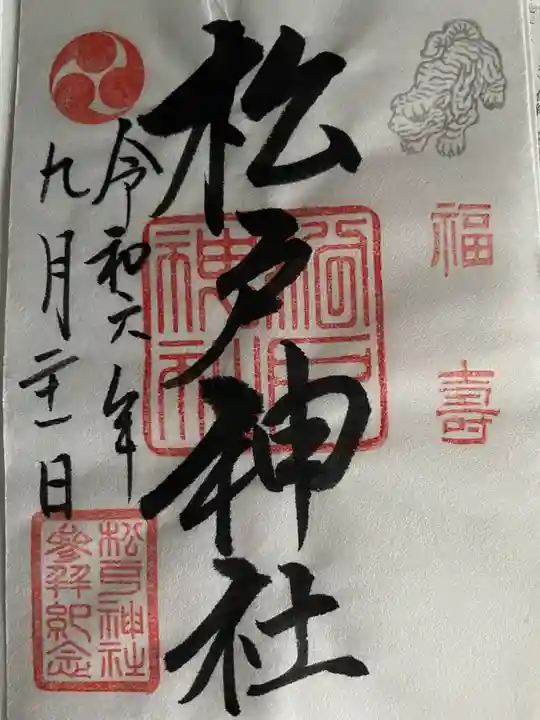 福壽
松戸神社
松戸神社
令和六年
九月二十一日
松戸神社
參拜紀念